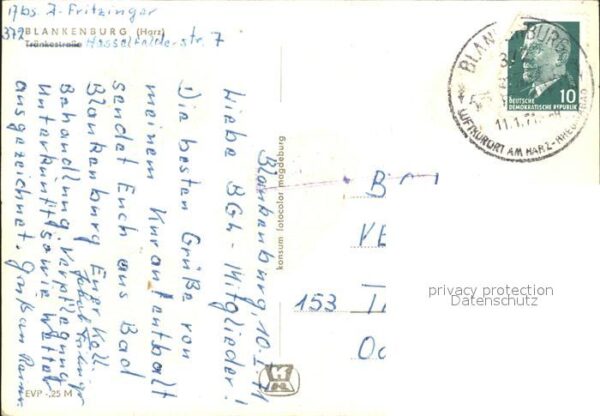 Abs. J. Fritzinger
372 BLANKENBURG (Harz)
Tränkestraße Hasselfelderstr. 7
Blankenburg, 10.I.71
Liebe BGL-Mitglieder!
Die besten Grüße von
meinem Kuraufenthalt
sendet Euch aus Bad
Blankenburg Euer Koll.
Behandlung, Verpflegung
Unterkunft sowie Wetter
ausgezeichnet. Gruß an
EVP -,25 M
konsum fotocolor magdeburg
BLANKENBURG
372
11.1.71
LUFTKURORT AM HARZ-KREUZBAD
DEUTSCHE
DEMOKRATISCHE REPUBLIK
10
B
VE
153
privacy protection
Datenschutz